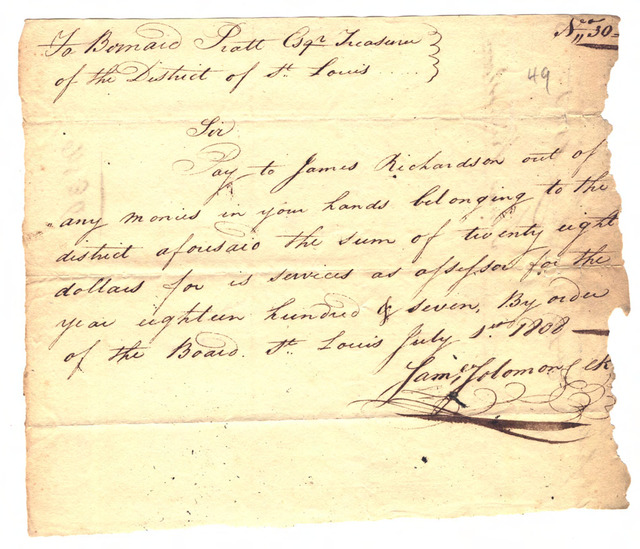 No 30
To Bernard Pratt Esqr Treasurer
of the District of St. Louis .....
49
Sir
Pay to James Richardson out of
any monies in your hands belonging to the
district aforesaid the sum of twenty eight
dollars for is services as assessor for the
year eighteen hundred & seven. By order
of the Board. St. Louis July 1st 1808 —
Saml Solomon Clk